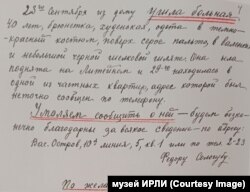 25го Сентября из дому ушла больная,
40 лет, брюнетка, худенькая, одета в темно-
красный костюм, поверх серое пальто, в валенках
и небольшой черной шелковой шляпе. Она была
поднята на Литейном и 29го находилась в
одной из частных квартир, адрес которой был
неточно сообщен по телефону.
Умоляем сообщить о ней — будем беско-
нечно благодарны за всякое сведение — по адресу
Вас. Остров, 10я линия, 5, кв. 1 или по тел 2-23
Федору Сологубу
По жела
музей ИРЛИ (Courtesy Image)